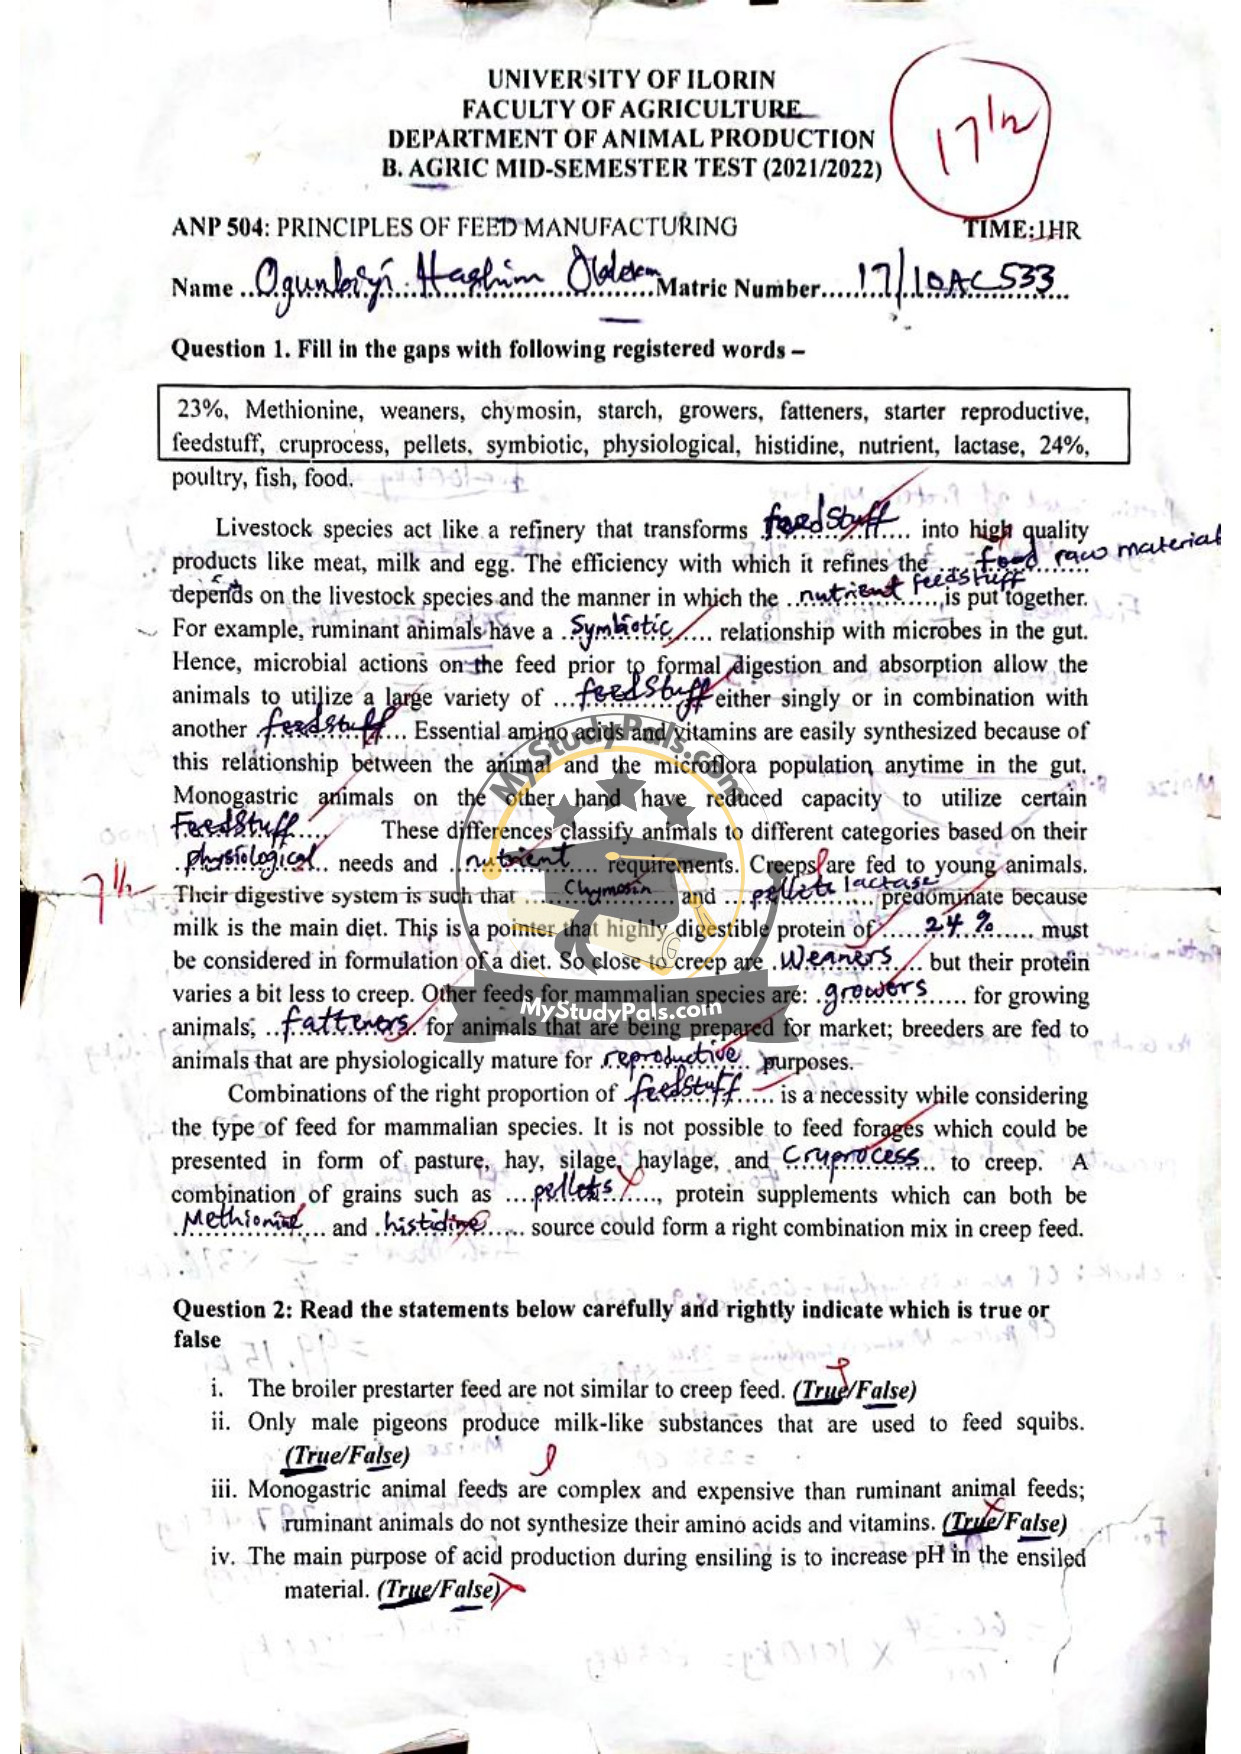 UNIVERSITY OF ILORIN
FACULTY OF AGRICULTURE
DEPARTMENT OF ANIMAL PRODUCTION
B. AGRIC MID-SEMESTER TEST (2021/2022)
17 1/2
ANP 504: PRINCIPLES OF FEED MANUFACTURING TIME:1HR
Name .. Hashim .......Matric Number......17/10AC533
Question 1. Fill in the gaps with following registered words –
23%, Methionine, weaners, chymosin, starch, growers, fatteners, starter reproductive,
feedstuff, cruprocess, pellets, symbiotic, physiological, histidine, nutrient, lactase, 24%,
poultry, fish, food.
Livestock species act like a refinery that transforms feedstuff into high quality
products like meat, milk and egg. The efficiency with which it refines the ... food raw material
depends on the livestock species and the manner in which the ..nutrient feedstuff is put together.
For example, ruminant animals have a ..Symbiotic.... relationship with microbes in the gut.
Hence, microbial actions on the feed prior to formal digestion and absorption allow the
animals to utilize a large variety of ...feedstuff either singly or in combination with
another .feedstuff... Essential amino acids and vitamins are easily synthesized because of
this relationship between the animal and the microflora population anytime in the gut.
Monogastric animals on the other hand have reduced capacity to utilize certain
Feedstuff.... These differences classify animals to different categories based on their
.physiological.. needs and ..nutrient.... requirements. Creeps are fed to young animals.
7 1/2
Their digestive system is such that ....Chymosin.... and ...pellets lactase predominate because
milk is the main diet. This is a pointer that highly digestible protein of ......24%...... must
be considered in formulation of a diet. So close to creep are .Weaners.... but their protein
varies a bit less to creep. Other feeds for mammalian species are: .growers..... for growing
animals, ..fatteners. for animals that are being prepared for market; breeders are fed to
animals that are physiologically mature for .reproductive. purposes.
Combinations of the right proportion of .feedstuff..... is a necessity while considering
the type of feed for mammalian species. It is not possible to feed forages which could be
presented in form of pasture, hay, silage, haylage, and Cruprocess... to creep. A
combination of grains such as ....pellets....., protein supplements which can both be
Methionine.... and .histidine..... source could form a right combination mix in creep feed.
Question 2: Read the statements below carefully and rightly indicate which is true or
false
i. The broiler prestarter feed are not similar to creep feed. (True/False)
ii. Only male pigeons produce milk-like substances that are used to feed squibs.
(True/False)
iii. Monogastric animal feeds are complex and expensive than ruminant animal feeds;
ruminant animals do not synthesize their amino acids and vitamins. (True/False)
iv. The main purpose of acid production during ensiling is to increase pH in the ensiled
material. (True/False)
MyStudyPals.com
MyStudyPals.com